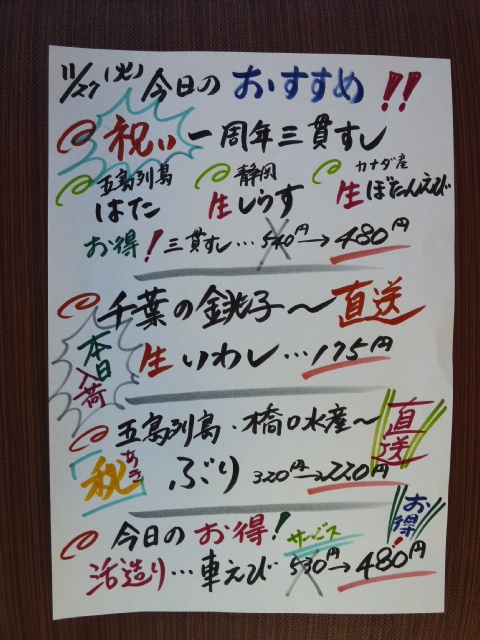 11/27(火) 今日の おすすめ!!
祝い 一周年三貫すし
五島列島 静岡 カナダ産
はた 生しらす 生ぼたんえび
お得! 三貫すし…540円→480円
千葉の銚子〜直送
本日入荷 生いわし…175円
五島列島・橋口水産〜直送
秋 あき ぶり 320円→220円
今日の お得! サービス お得!
活造り…車えび 530円→480円